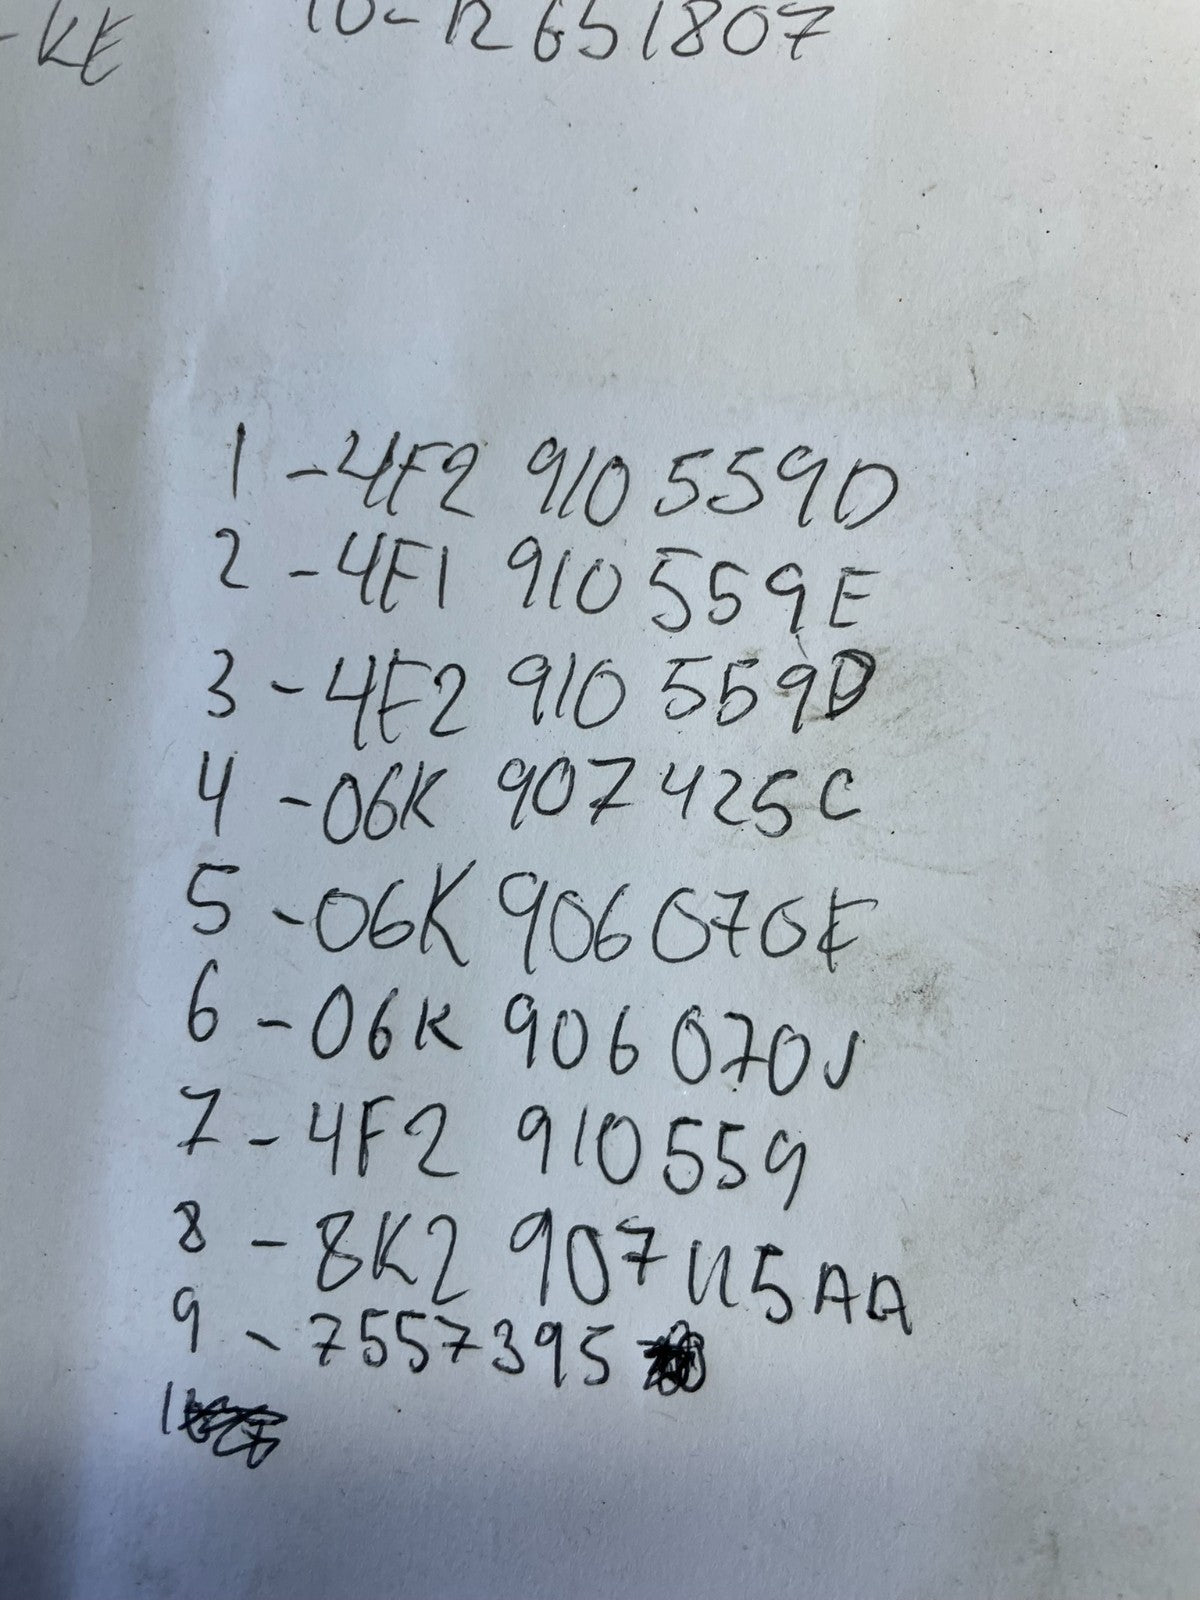 -KE 10-12651807
1 - 4F2 910 559D
2 - 4F1 910 559E
3 - 4F2 910 559D
4 - 06K 907 425C
5 - 06K 906 070E
6 - 06K 906 070J
7 - 4F2 910 559
8 - 8K2 907 115AA
9 - 7557395